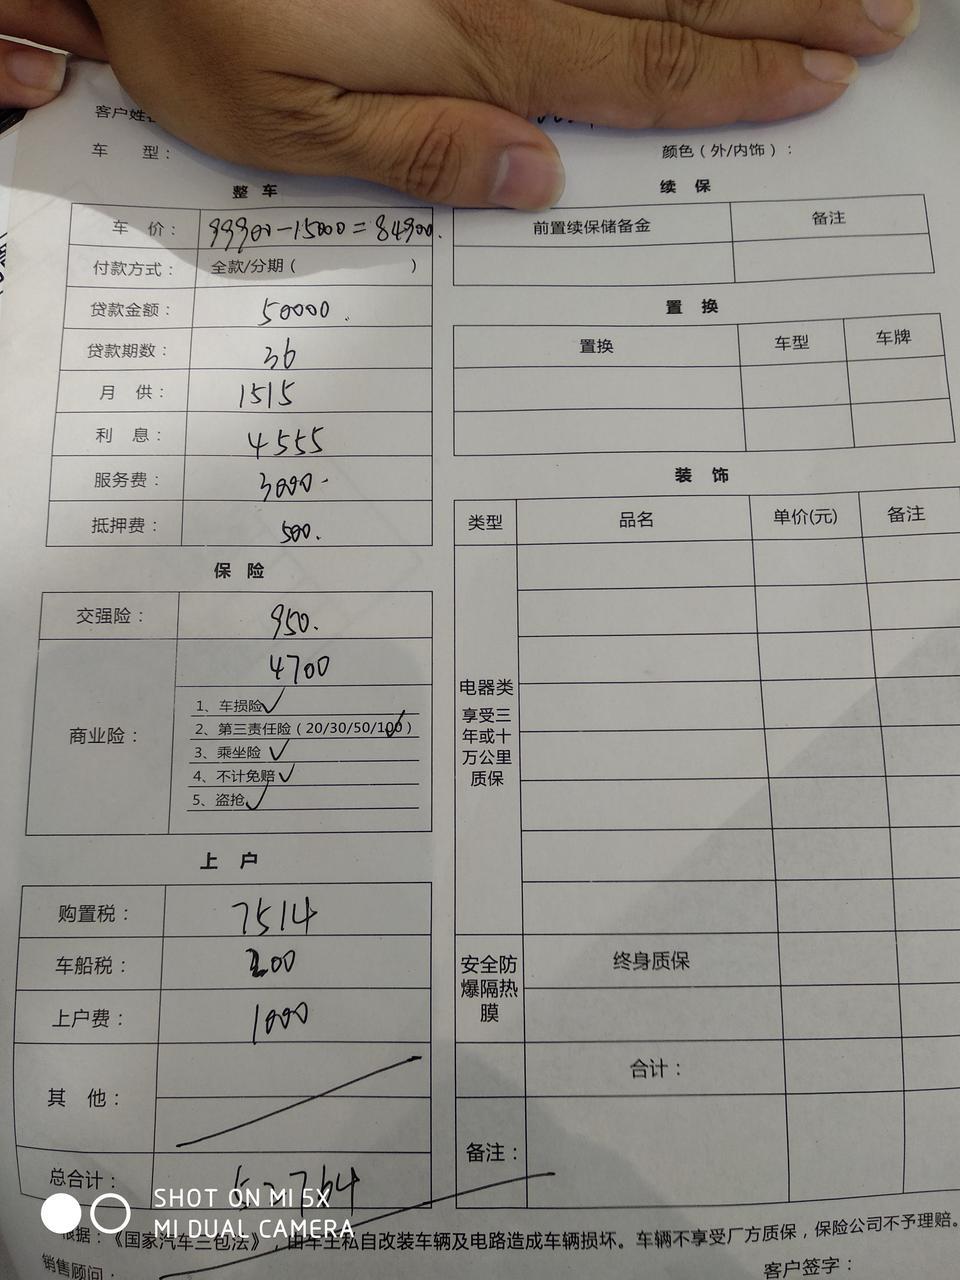 客户姓名
车 型：
颜色（外/内饰）：
整 车
车 价： 99900-15000=84900.
付款方式： 全款/分期（ ）
贷款金额： 50000.
贷款期数： 36
月 供： 1515
利 息： 4555
服务费： 3000-
抵押费： 500.
保 险
交强险： 950.
商业险： 4700
1、车损险✓
2、第三责任险（20/30/50/100）✓
3、乘坐险 ✓
4、不计免赔✓
5、盗抢✓
上 户
购置税： 7514
车船税： 200
上户费： 1000
其 他：
总合计： 52764
续 保
前置续保储备金 备注
置 换
置换 车型 车牌
装 饰
类型 品名 单价(元) 备注
电器类
享受三
年或十
万公里
质保
安全防
爆隔热
膜
终身质保
合计：
备注：
根据：《国家汽车三包法》，由车主私自改装车辆及电路造成车辆损坏。车辆不享受厂方质保，保险公司不予理赔。
销售顾问：
客户签字：
SHOT ON MI 5X
MI DUAL CAMERA